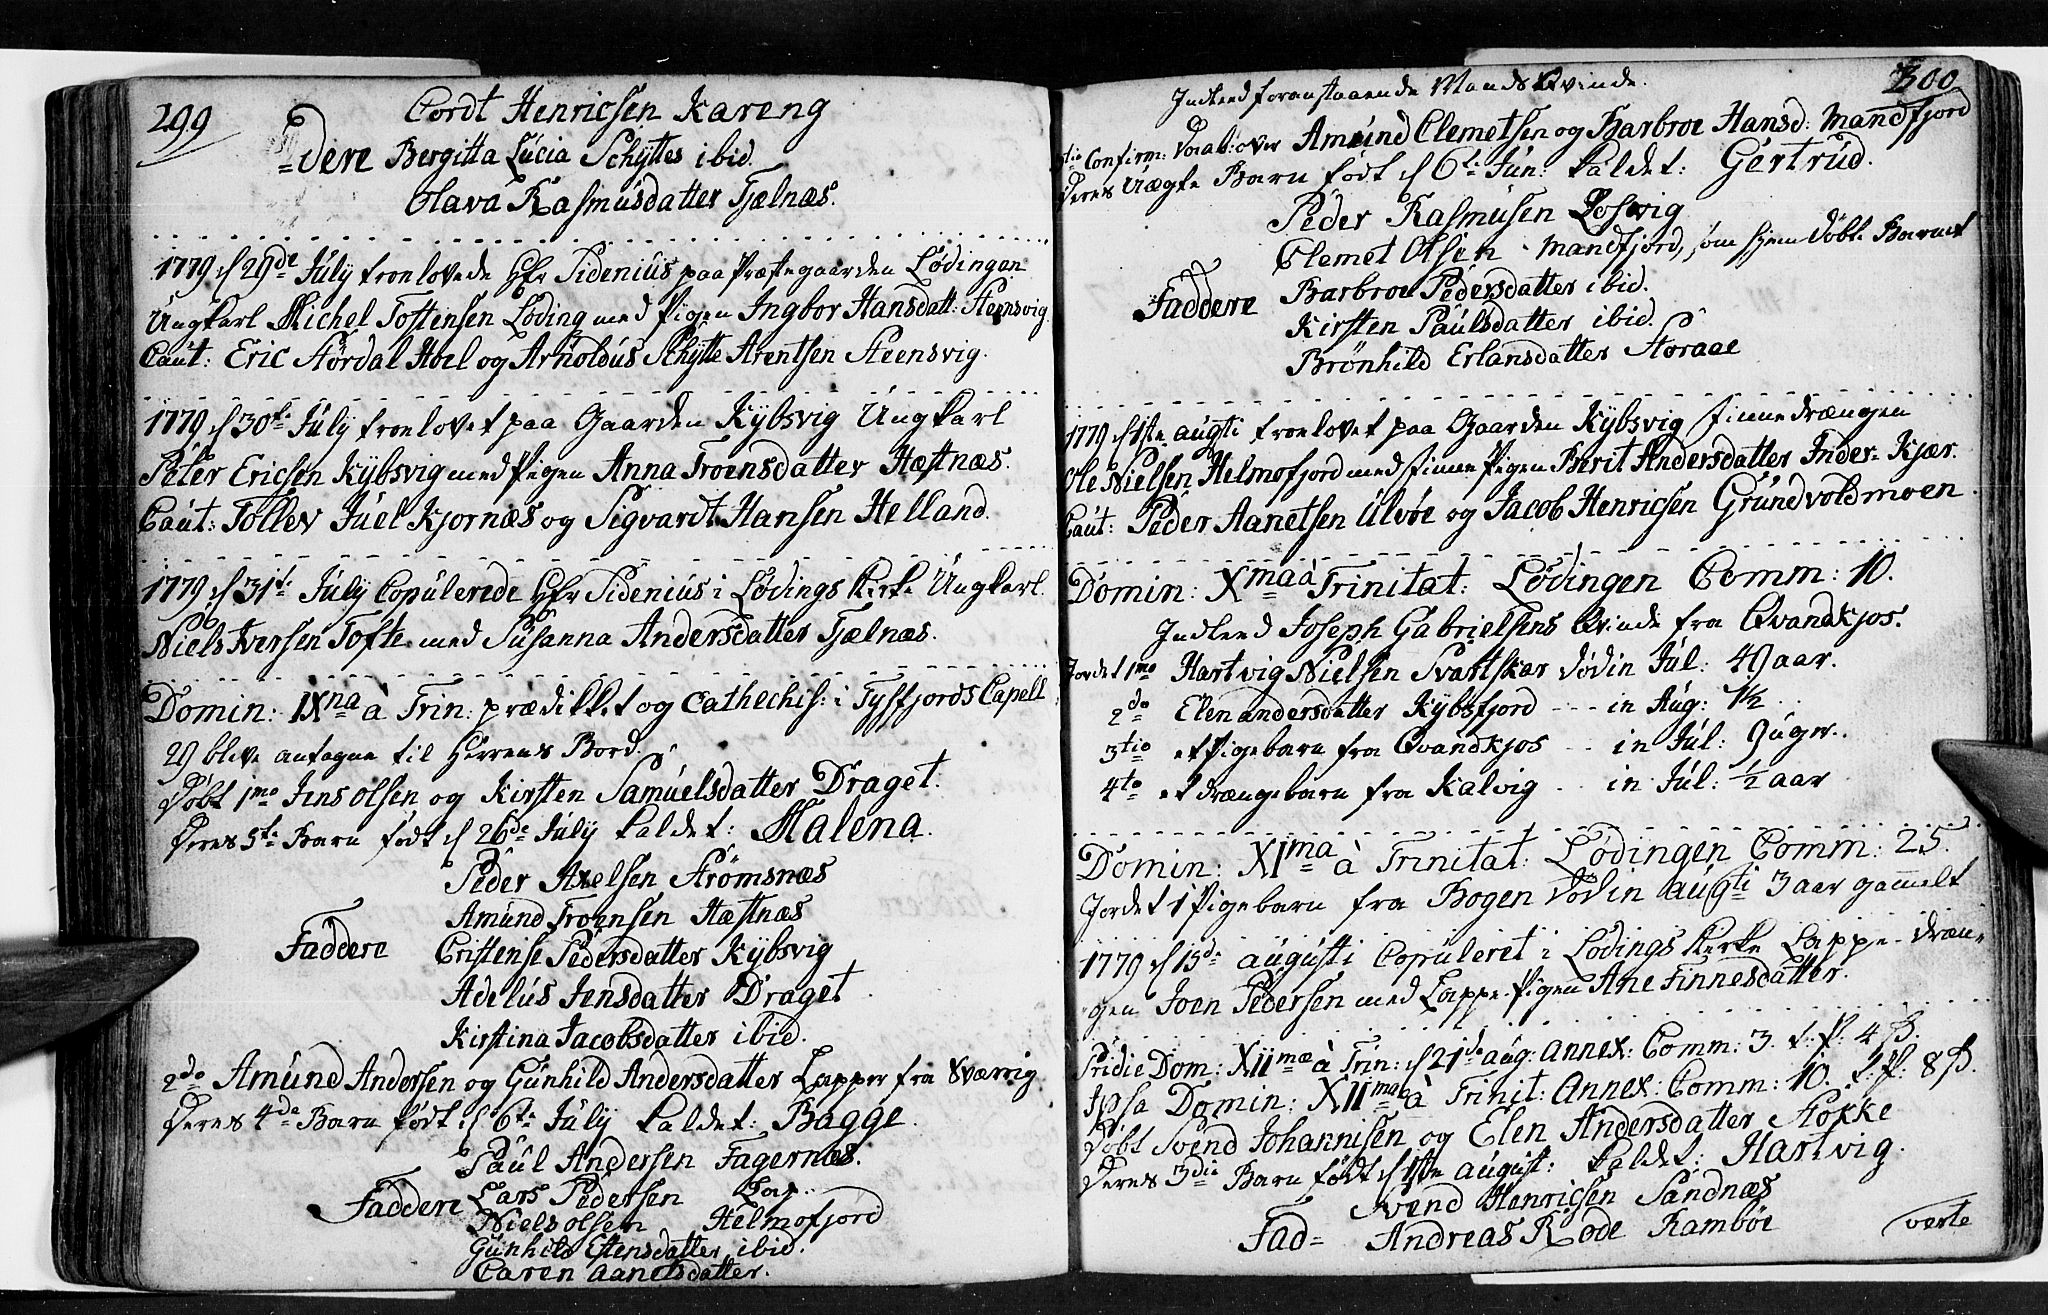 299
Cordt Henricsen Kareng
=dere Bergitta Lucia Schyttes ibid.
Olava Rasmusdatter Tjælnæs.
1779 d 29de July troelovede Hr Sidenius paa Præstegaarden Lødingen
Ungkarl Michel Tostensen Løding med Pigen Ingbor Hansdatt: Steensvig.
Caut: Eric Størdal Hoel og Arnoldus Schytte Arentsen Steensvig.
1779 d 30te July troelovet paa Gaarden Kybsvig Ungkarl
Peter Ericsen Kybsvig med Pigen Anna Troensdatter Hæstnæs.
Caut: Tollev Juel Kjornæs og Sigvardt Hansen Helland.
1779 d 31te July Copulerede Hr Sidenius i Lødings Kirke Ungkarl
Niels Iversen Tofte med Susanna Andersdatter Tjælnæs.
Domin: IXna à Trin: prædikket og Cathechis: i Tysfjords Capell
29 bleve antagne til Herrens Bord.
Døbt 1mo Jens Olsen og Kirsten Samuelsdatter Draget.
Deres 5te Barn født d 26de July kaldet: Malena.
Peder Axelsen Strømsnæs
Amund Troensen Hæstnæs
Faddere Cristense Pedersdatter Kybsvig
Adelus Jensdatter Draget
Kirstina Jacobsdatter ibid.
2do Amund Andersen og Gunhild Andersdatter Lapper fra Sværrig
Deres 4de Barn født d 6te July kaldet: Bagge.
Paul Andersen Fagernæs.
Faddere Lars Pedersen Lap.
Niels Olsen Helmofjord
Gunhild Estensdatter ibid.
Caren Aanetsdatter.
300
Indleed foranstaaende Mands Qvinde.
Confirm: Daab: over Amund Clemetsen og Barbroe Hansd: Mandfjord
Deres Uægte Barn født d 6te Jun: kaldet: Gertrud.
Peder Rasmusen Losvig
Clemet Olsen Mandfjord, som hjemdøbte Barnet
Faddere Barbroe Pedersdatter ibid.
Kirsten Paulsdatter ibid.
Brønhild Erlansdatter Storaae
1779 d 1ste augti troelovet paa Gaarden Kybsvig Finnedrængen
Ole Nielsen Helmofjord med Finne Pigen Berit Andersdatter Inder-Kjær.
Caut: Peder Aanetsen Ulvøe og Jacob Henricsen Grundvoldmoen.
Domin: Xma à Trinitat: Lødingen Comm: 10.
Indleed Joseph Gabrielsens Qvinde fra Qvandkjos.
Jordet 1mo Hartvig Nielsen Svartskar død in Jul: 49 aar.
2do Elen andersdatter Kybsfjord --- in Aug: 1½
3tio et Pigebarn fra Qvandkjos -- in Jul: 9 uger.
4to et drængebarn fra Kalvig -- in Jul: 1/2 aar
Domin: XIma à Trinitat: Lødingen Comm: 25.
Jordet 1 Pigebarn fra Bogen død in augti 3 aar gammelt
1779 d 15de augusti Copuleret i Lødings Kirke Lappe-dræn=
gen Joen Pedersen med Lappe-Pigen Ane Finnesdatter.
Pridie Dom: XIImæ à Trin: d 21de aug: Annex: Comm: 3. t: fl: 4 ß.
Ipsa Domin: XIIma à Trinit: Annex: Comm: 10. t: fl: 8 ß.
Døbt Svend Johannisen og Elen Andersdatter Stokke
Deres 3die Barn født d 1ste august: kaldet: Hartvig.
Svend Henricsen Sandnæs
Fad= Andreas Røde Rambøe
verte